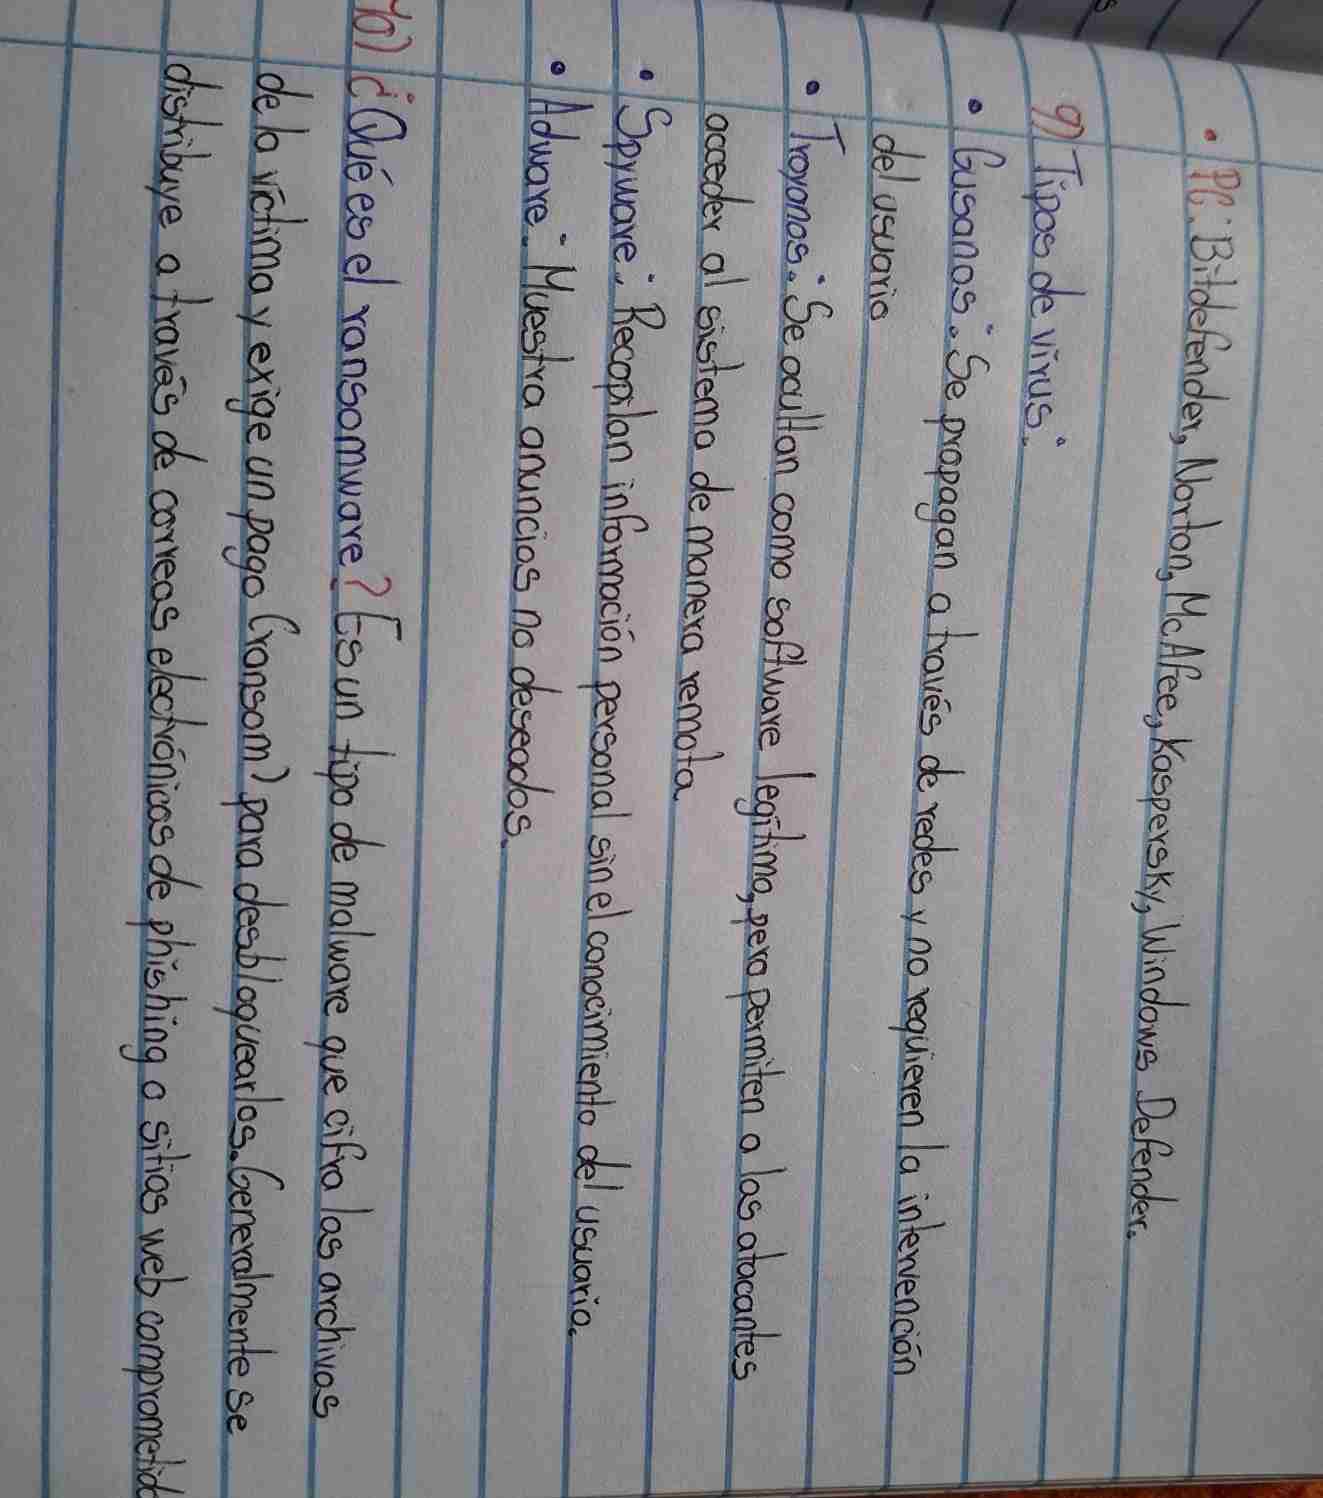 • PC: Bitdefender, Norton, McAfee, Kaspersky, Windows Defender.
9) Tipos de virus:
• Gusanos: Se propagan a través de redes y no requieren la intervención
del usuario
• Troyanos: Se ocultan como software legítimo, pero permiten a los atacantes
acceder al sistema de manera remota
• Spyware: Recopilan información personal sin el conocimiento del usuario.
• Adware: Muestra anuncios no deseados.
10) ¿Qué es el ransomware? Es un tipo de malware que cifra los archivos
de la víctima y exige un pago (ransom) para desbloquearlos. Generalmente se
distribuye a través de correos electrónicos de phishing o sitios web